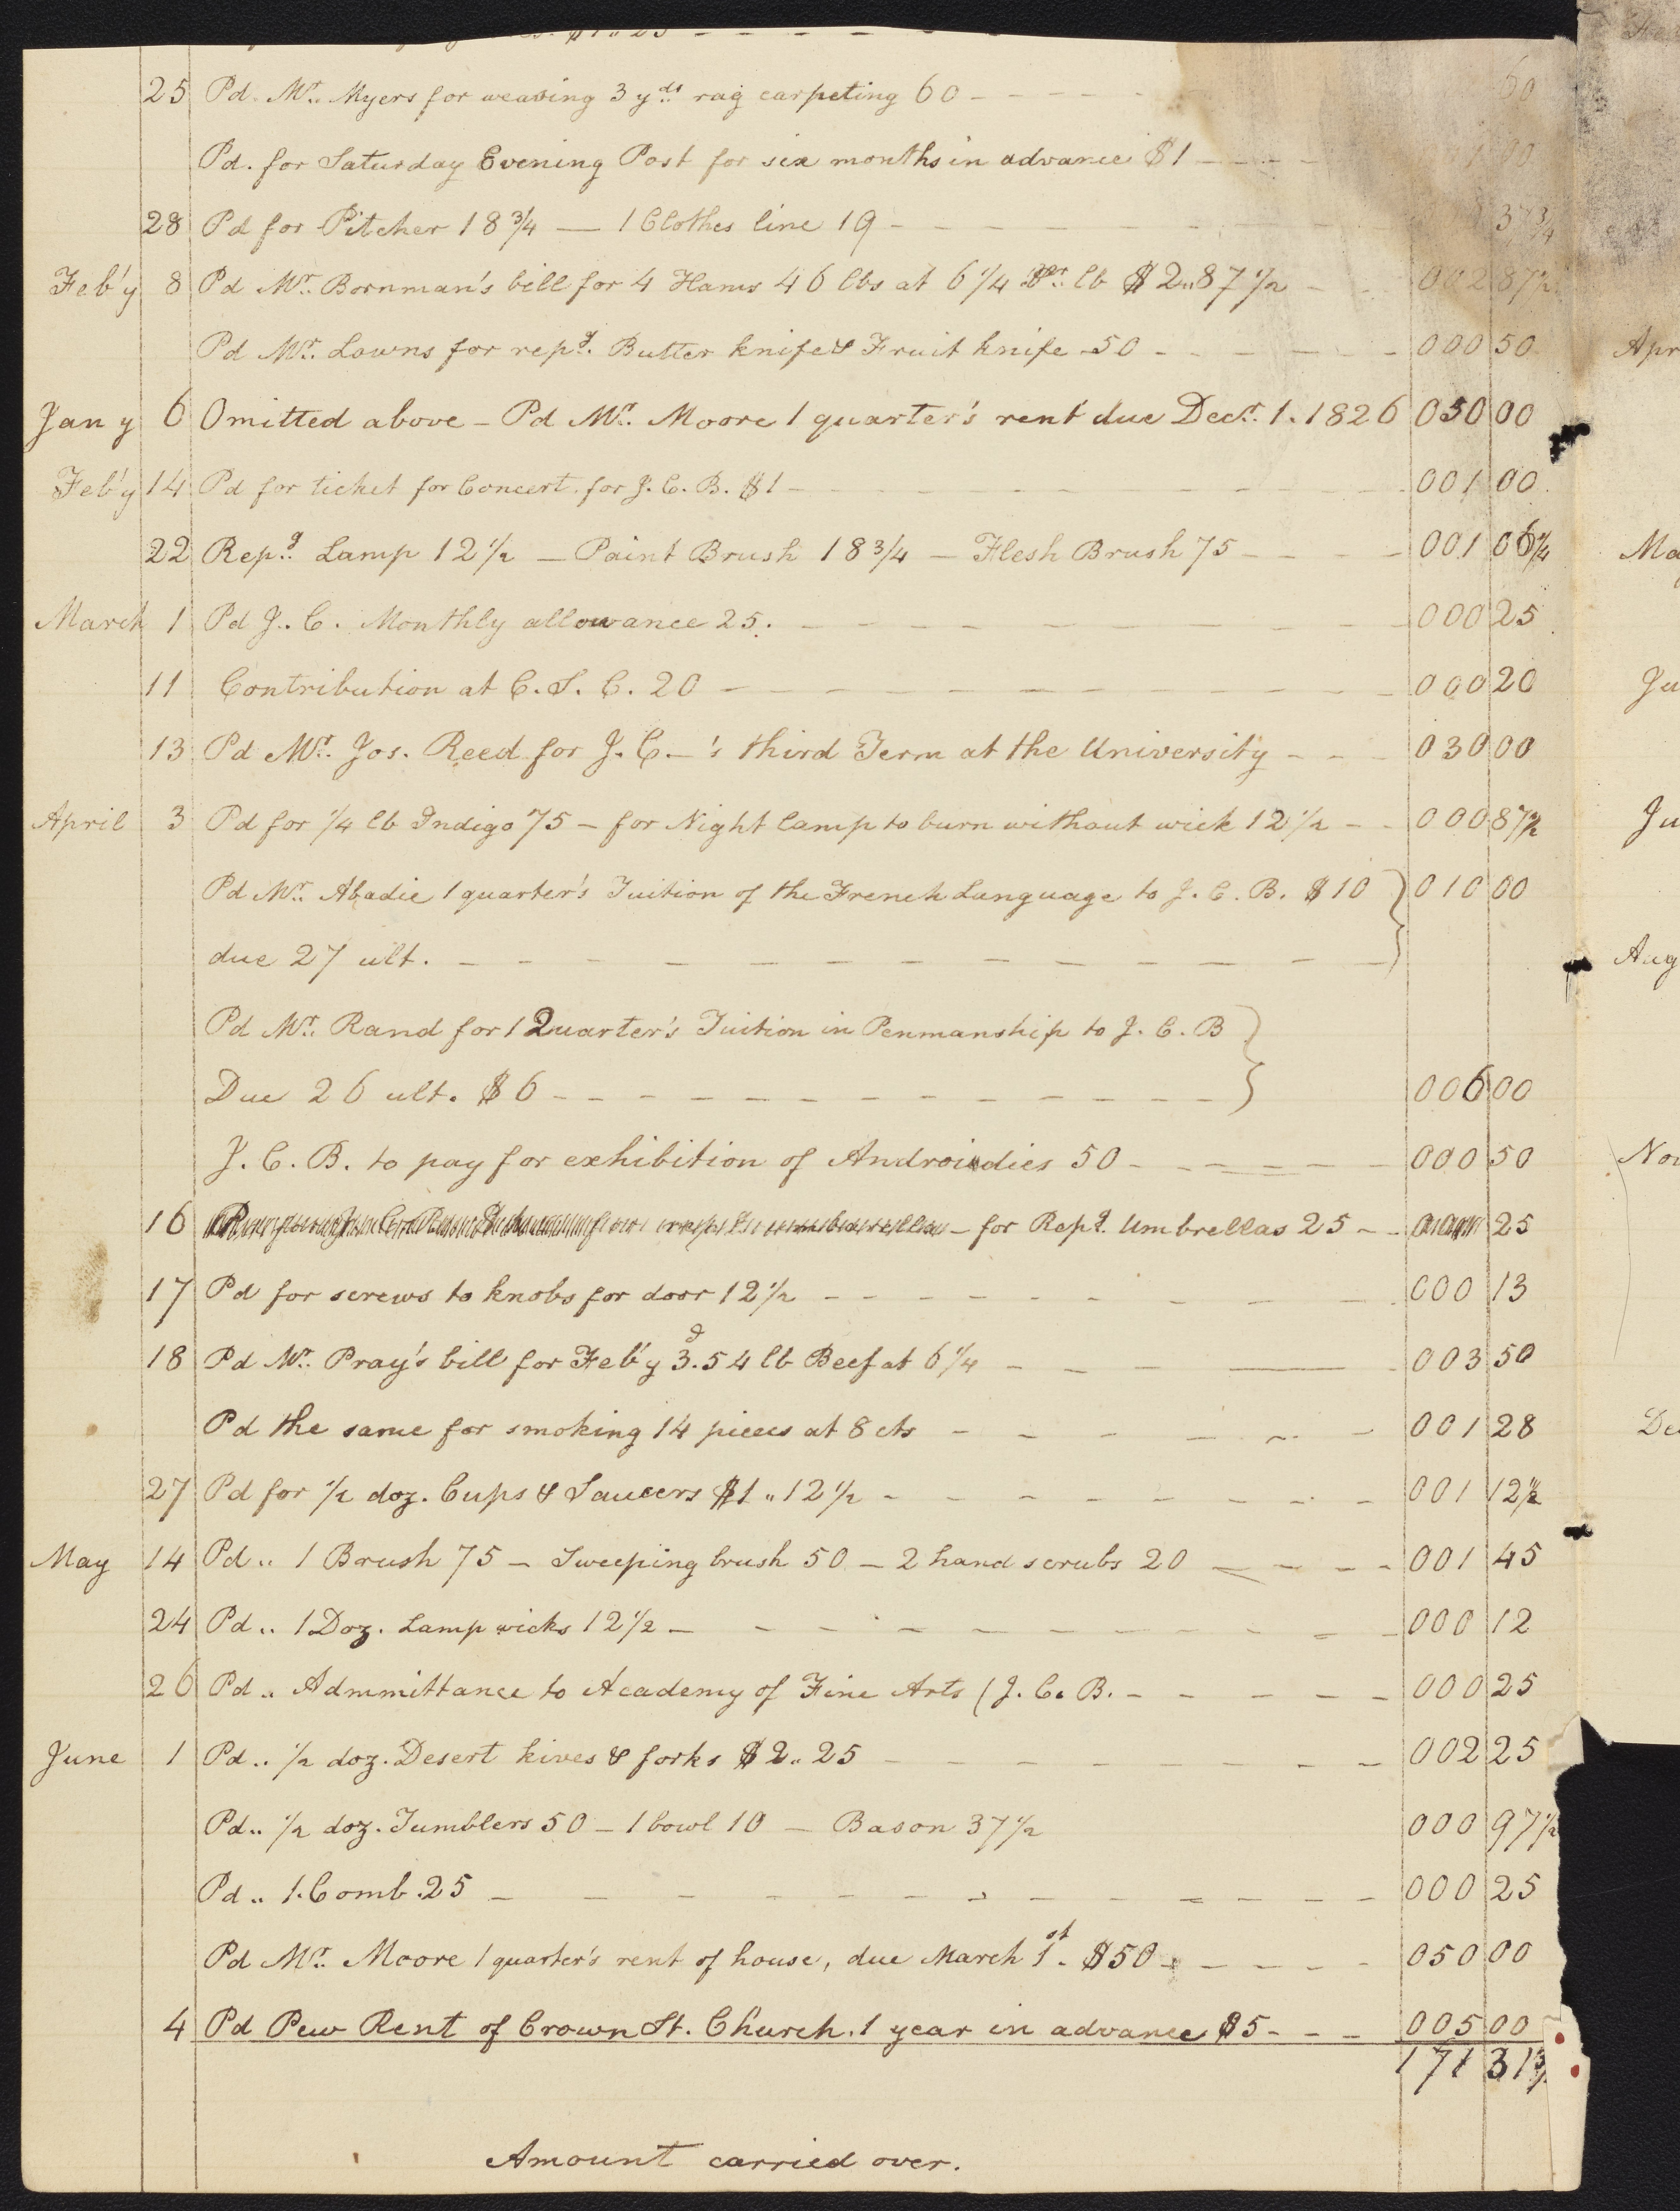 25 Pd. Mr. Myers for weaving 3 yds rag carpeting 60 - - - - - 60
Pd. for Saturday Evening Post for six months in advance $1 - - - - 1 00
28 Pd for Pitcher 18 3/4 — 1 Clothes line 19 - - - - - - 37 3/4
Feb'y 8 Pd Mr. Bornman's bill for 4 Hams 46 lbs at 6 1/4 Pr. lb $2..87 1/2 - - 002 87 1/2
Pd Mr. Lowns for repg. Butter knife & Fruit knife -50 - - - - - - 000 50
Jan y 6 Omitted above - Pd Mr. Moore 1 quarter's rent due Decr. 1. 1826 050 00
Feb'y 14 Pd for ticket for Concert for J. C. B. $1 - - - - - - 001 00
22 Repg. Lamp 12 1/2 — Paint Brush 18 3/4 — Flesh Brush 75 - - - - 001 06 1/4
March 1 Pd J.. C. Monthly allowance 25. - - - - - - 000 25
11 Contribution at C. S. C. 20 - - - - - - 000 20
13 Pd Mr. Jos. Reed for J. C. -'s third Term at the University - - - 030 00
April 3 Pd for 1/4 lb Indigo 75 - for Night lamp to burn without wick 12 1/2 - - 000 87 1/2
Pd Mr. Abadie 1 quarter's Tuition of the French Language to J. C. B. $10 } 010 00
due 27 ult. - - - - - -
Pd Mr. Rand for 1 Quarter's Tuition in Penmanship to J. C. B }
Due 26 ult. $6 - - - - - - 006 00
J. C. B. to pay for exhibition of Androidies 50 - - - - - 000 50
16 - for Repg. Umbrellas 25 - - 25
17 Pd for screws to knobs for door 12 1/2 - - - - - - 000 13
18 Pd Mr. Pray's bill for Feb'y 3d. 54 lb Beef at 6 1/4 - - - — - 003 50
Pd the same for smoking 14 pieces at 8 cts - - - - - - 001 28
27 Pd for 1/2 doz. Cups & Saucers $1..12 1/2 - - - - - - 001 12 1/2
May 14 Pd .. 1 Brush 75 - Sweeping brush 50 - 2 hand scrubs 20 - - - - 001 45
24 Pd .. 1 Doz. Lamp wicks 12 1/2 - - - - - - 000 12
26 Pd .. Admmittance to Academy of Fine Arts (J. C. B. - - - - - 000 25
June 1 Pd .. 1/2 doz. Desert kives & forks $2..25 - - - - - 002 25
Pd .. 1/2 doz. Tumblers 50 - 1 bowl 10 - Bason 37 1/2 000 97 1/2
Pd .. 1. Comb .25 - - - - - - 000 25
Pd Mr. Moore 1 quarter's rent of house, due March 1st. $50 - - - - - 050 00
4 Pd Pew Rent of Crown St. Church. 1 year in advance $5 - - - 005 00
171 31 3/
Amount carried over.
Apr
Ma
Ju
Ju
Aug
Nov
De